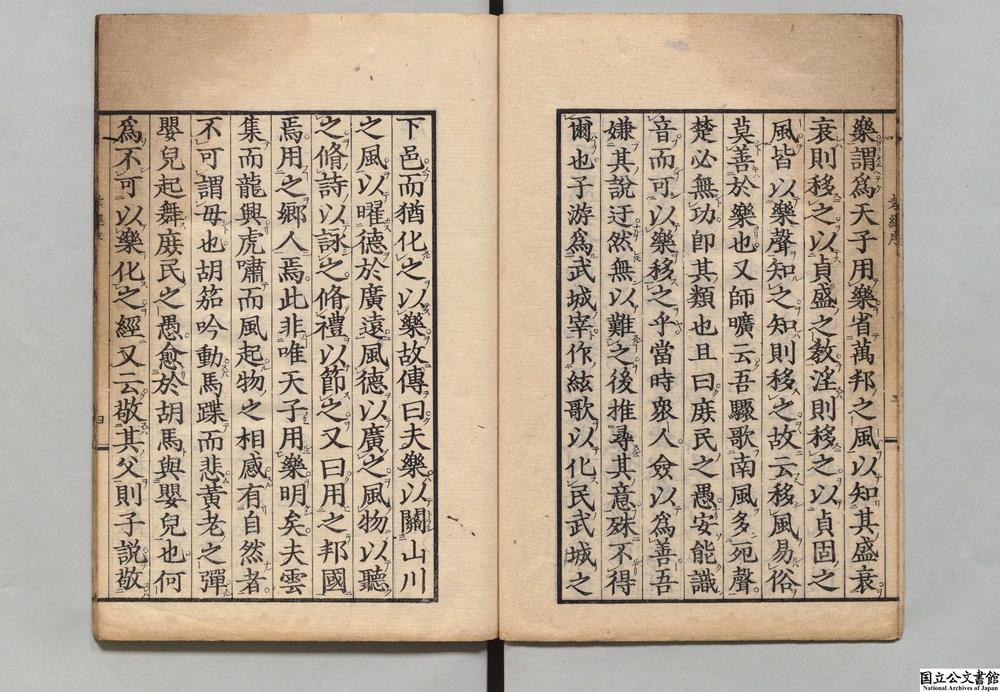 樂謂爲天子用樂省萬邦之風以知其盛衰
衰則移之以貞盛之教淫則移之以貞固之
風皆以樂聲知之知則移之故云移風易俗
莫善於樂也又師曠云吾驟歌南風多死聲
楚必無功卽其類也且曰庶民之愚安能識
音而可以樂移之乎當時衆人僉以爲善吾
嫌其說迂然無以難之後推尋其意殊不得
爾也子游爲武城宰作絃歌以化民武城之
下邑而猶化之以樂故傳曰夫樂以關山川
之風以曜德於廣遠風德以廣之風物以聽
之脩詩以詠之脩禮以節之又曰用之邦國
焉用之鄉人焉此非唯天子用樂明矣夫雲
集而龍興虎嘯而風起物之相感有自然者
不可謂毋也胡笳吟動馬蹀而悲黃老之彈
嬰兒起舞庶民之愚愈於胡馬與嬰兒也何
爲不可以樂化之經又云敬其父則子說敬
孝經序
四
国立公文書館
National Archives of Japan